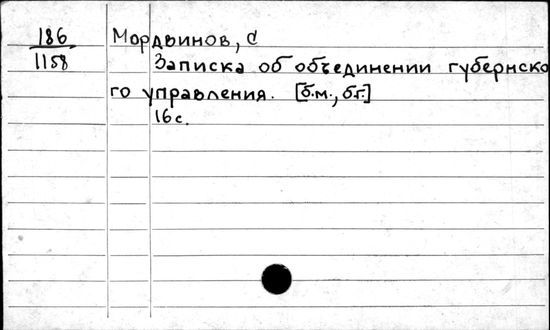 186 Мордвинов, С
1158 Записка об объединении губернско
го управления. [б.м., б.г.]
16 с.